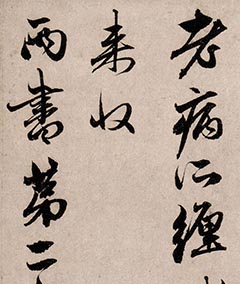 老病仍纏
来收
两書第二